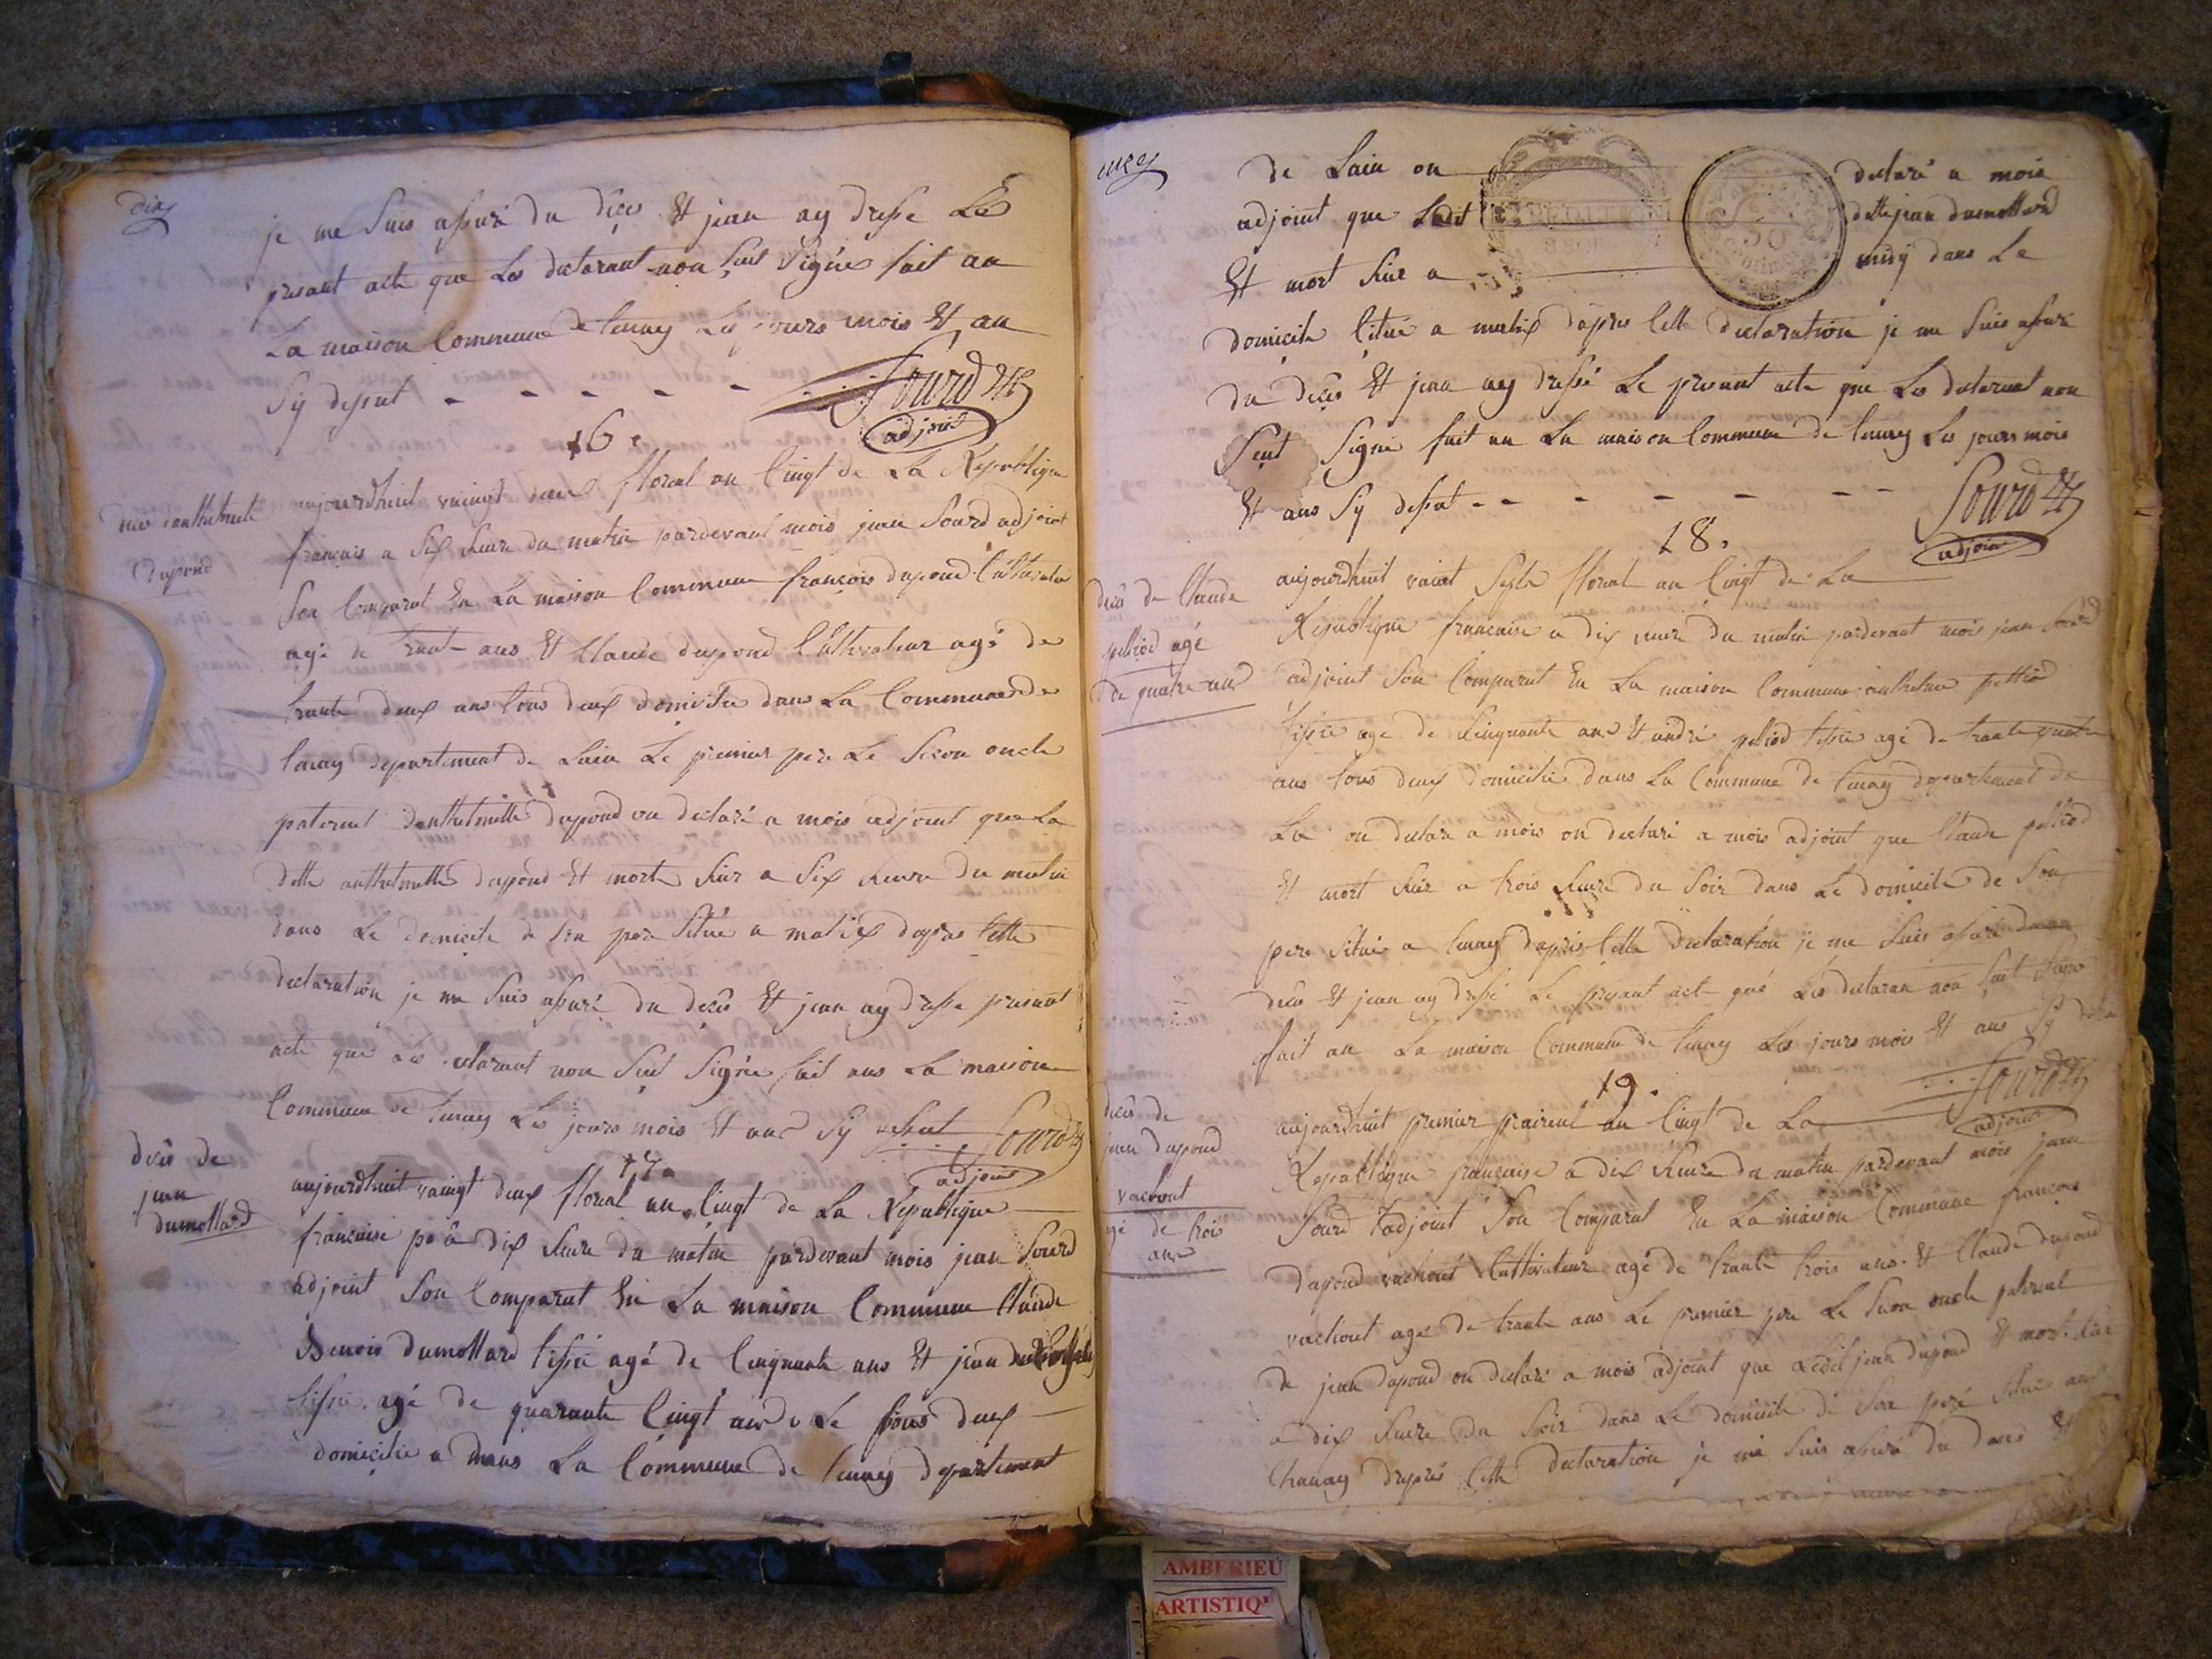 dix
je me suis assuré du déces Et jean ay dresse Les
presant acte que Les declarant non seut Signée fait an
La maison Commune de tenay Les jours mois Et an
Sy desseut - - - - - Sourd
adjoint
16.
deces danthelmette
dupond
aujourdhuit vaingt deux floreal an Cinqt de La Republique
français a six heure du matin pardevant mois jean Sourd adjoint
son Comparut En La maison Commune françois dupond Cultivateur
agé de trante ans Et Claude dupond Cultivateur agé de
trante deux ans tous deux domicilie dans La Commune de
tenay departement de Lain Le premier pere Le Secon oncle
paternel danthelmette dupond on declaré a mois adjoint que La
dette anthelmette dupond Et morte hier a six heure du matin
dans Le domicile de son pere Situé a malix dapres Cette
declaration je me suis assuré du décés Et jean ay dresse presant
acte que Les declarant non seut Signée fait ans La maison
Commune de tenay Les jours mois Et ans Sy desseut Sourd
adjoint
17.
décés de
jean
dumollard
aujourdhuit vaingt deux floreal an Cinqt de La Republique
francaise a dix heure du matin pardevant mois jean Sourd
adjoint son Comparut En La maison Commune Claude
Benois dumollard tissié agé de Cinquante ans Et jean
tissié agé de quarante Cinqt ans Le tous deux
domicilie a dans La Commune de tenay departement
onze
de Lain on declaré a mois
adjoint que Ledit dette jean dumollard
Et mort hier a midy dans Le
domicile Situé a malix dapres Cette declaration je me suis assuré
du décés Et jean ay dressé Le presant acte que Les declarant non
Seut Signé fait an La maison Commune de tenay Les jours mois
Et ans Sy desseut - - - - - - - Sourd
adjoint
18.
decés de Claude
pelliod agé
de quatre ans
aujourdhuit vaint Septe floreal an Cinqt de La
Republique francaise a dix heure du matin pardevant mois jean Sourd
adjoint son Comparut En La maison Commune anthelme pelliod
tissié agé de Cinquante ans Et andré pelliod tissié agé de trante quatre
ans tous deux domicilie dans La Commune de tenay departement de
on declare a mois on declaré a mois adjoint que Claude pelliod
Et mort hier a trois heure du soir dans Le domicile de son
pere Situé a tenay dapres Cette declaration je me suis assuré du
decés Et jean ay dressé Le presant acte que Les declaran non seut Signé
fait an La maison Commune de tenay Les jours mois Et ans Sy
Sourd
adjoint
19.
decés de
jean dupond
vachout
agé de trois
ans
aujourdhuit premier praireal an Cinqt de La
Republique francaise a dix heure du matin pardevant mois jean
Sourd adjoint son Comparut En La maison Commune francois
dupond vachout Cultivateur agé de trante trois ans Et Claude dupond
vachout agé de trante ans Le premier pere Le Secon oncle paternel
de jean dupond on declaré a mois adjoint que Ledit jean dupond Et mort hier
a dix heure du soir dans Le domicile de son peré Situé au
Chanay dapres Cette declaration je me suis assuré du deces Et
AMBERIEU
ARTISTIQ'